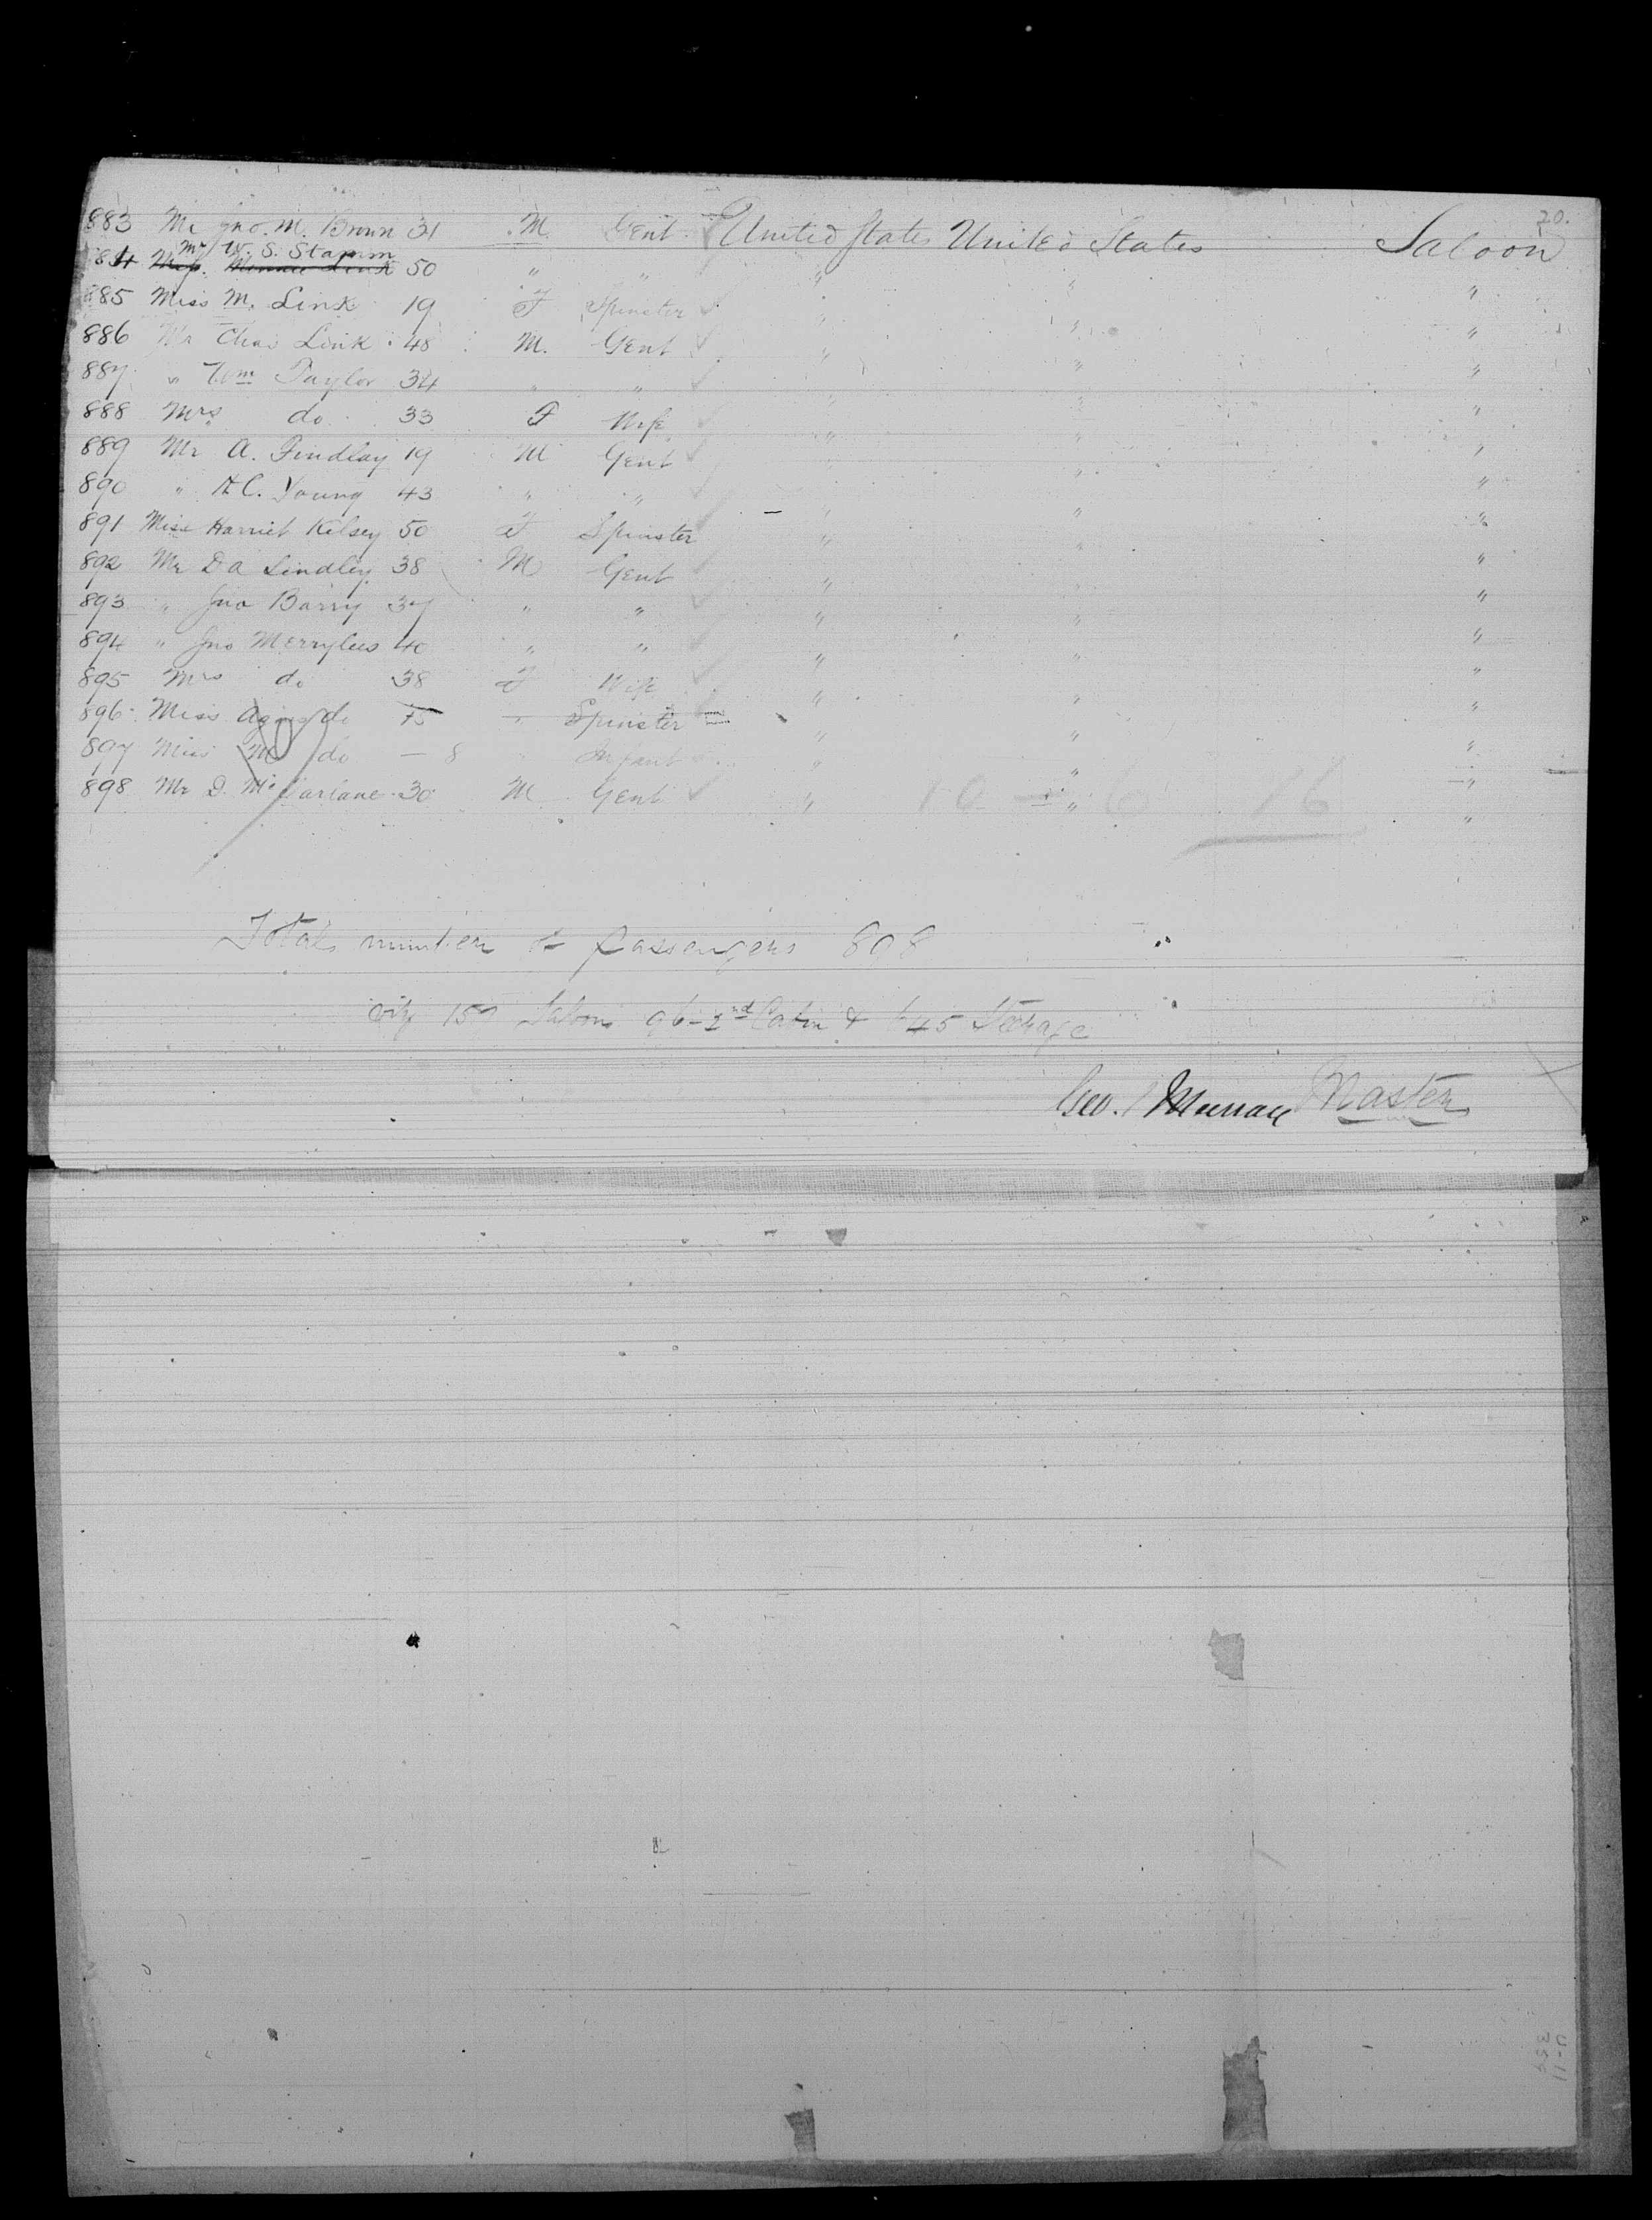 20.
883 Mr Jno. M. Brown 31 M. Gent United States United States Saloon
Mr W. S. Stamm
884 Miss. Minnie Link 50 " " " " "
885 Miss M. Link 19 F Spinster " " "
886 Mr Chas Link 48 M. Gent " " "
887 " Wm Taylor 34 " " " " "
888 Mrs do 33 F Wife " " "
889 Mr A. Findlay 19 M Gent " " "
890 " A.C. Young 43 " " " " "
891 Miss Harriet Kelsey 50 F Spinster " " "
892 Mr D A Lindley 38 M Gent " " "
893 " Jno Barry 37 " " " " "
894 " Jno Merrylees 40 " " " " "
895 Mrs do 38 F Wife " " "
896 Miss Agnes do " Spinster " " "
897 Miss M do — 8 " Infant " " "
898 Mr D. McFarlane 30 M Gent " " "
10 — 6 16
Total number of passengers 898
viz Saloon 96 - 2nd Cabin & 645 Steerage
Geo. Murray Master
U-11